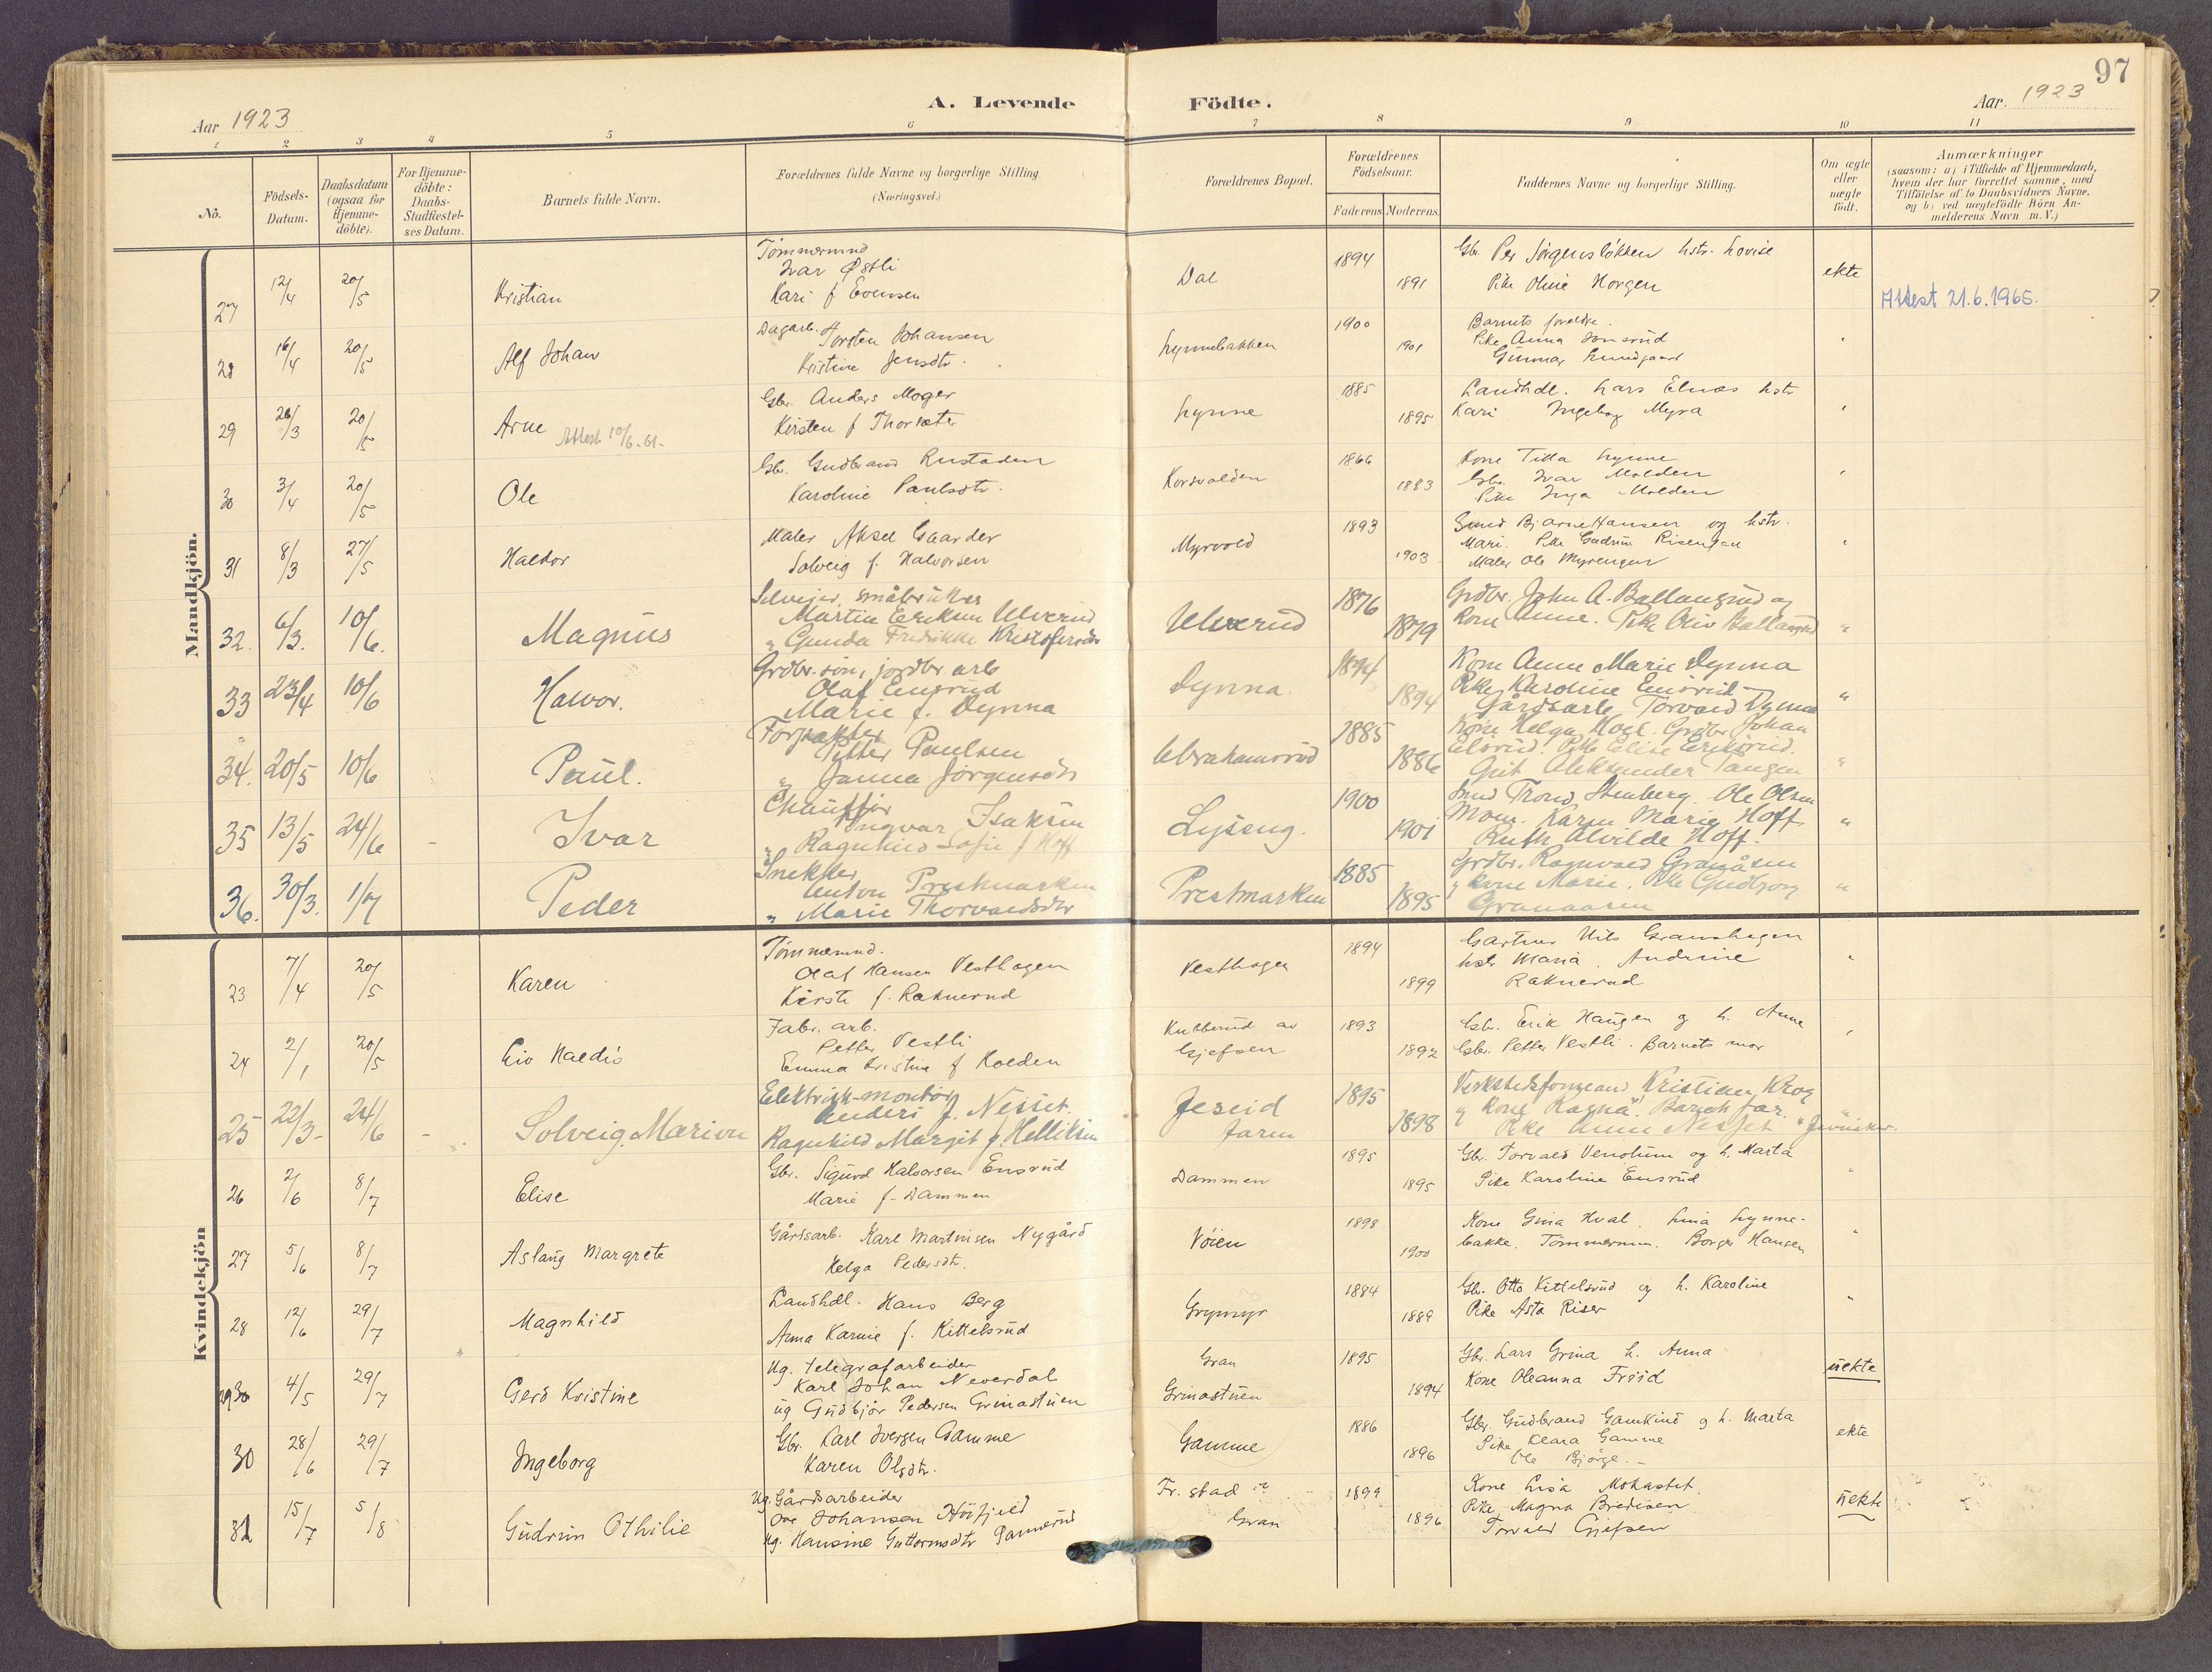 97
Aar 1923
A. Levende Födte.
Aar. 1923
1 2 3 4 5 6 7 8 9 10 11
No.
Födsels-Datum.
Daabsdatum (ogsaa for Hjemme-döbte).
For Hjemme-döbte: Daabs-Stadfæstel-ses Datum.
Barnets fulde Navn.
Forældrenes fulde Navne og borgerlige Stilling (Næringsvei.)
Forældrenes Bopæl.
Forældrenes Födselsaar.
Faderens Moderens.
Faddernes Navne og borgerlige Stilling.
Om ægte eller uægte födt.
Anmærkninger
(saasom: a) i Tilfælde af Hjemmedaab,
hvem der har forrettet samme, med
Tilföielse af to Daabsvidners Navne,
og b) ved uægtefödte Börn An-
melderens Navn m. V.)
Mandkjön.
27 12/4 20/5 Kristian
Tømmermnd
Ivar Østli
Kari f Evensen
Dal 1894 1891
Gbr. Per Jørgensløkken hstr. Lovise
Pike Oline Horgen
ekte
Attest 21.6.1965.
28 16/4 20/5 Alf Johan
Dagarb. Torsten Johansen
Kristine Jensdtr.
Lynnebakken 1900 1901
Barnets foreldre.
Pike Anna Jonsrud
Gunnar
29 26/3 20/5 Arne Attest 10/6-61.
Gbr. Anders Moger
Kirsten f Thorsæter
Lynne 1885 1895
Landhdl. Lars Elnæs hstr
Kari Ingeborg Myra
30 3/4 20/5 Ole
Gbr. Gudbrand Rustaden
Karoline Paulsdtr.
Korsvolden 1866 1883
Kone Tilla Lynne
Gbr. Ivar Molden
Pike Inga Molden
31 8/3 27/5 Haldor
Maler Aksel Gaarder
Solveig f. Halvorsen
Myrvold 1893 1903
Smed Bjarne Hansen og hstr.
Mari. Pike Gudrun Risengen
Maler Ole Myrengen
32. 6/3. 10/6. Magnus
Selveier, småbruker
Martin Eriksen Ulverud
" Gunda Fredrikke Kristofersdtr
Ulverud 1876 1879
Grdbr. John A. Ballangrud og
Kone Anne. Pike Oliv Ballangrud "
33 23/4 10/6 Halvor.
Grdbr. søn, jordbr. arb
Olaf Ensrud
Marie f. Dynna
Dynna. 1894 1894
Kone Anne Marie Dynna
Pike Karoline Ensrud
Gårdsarb Torvald Dynna "
34. 20/5 10/6 Paul.
Forpakter
Petter Paulsen
" Janna Jørgensdtr
Abrahamsrud 1885 1886
Kone Helga Hoel. Grdbr Johan
Elsrud. Pike Elise Eriksrud.
Gut Aleksander Tangen "
35 13/5 24/6 - Ivar
Chauffør
Ingvar Isaksen
" Ragnhild Sofie f Hoff
Lyseng. 1900 1901
Smed Trond Stenberg. Ole Olsen
Moen. Karen Marie Hoff.
Ruth Alvilde Hoff. "
36. 30/3. 1/7 Peder
Snekker
Anton Prestmarken
" Marie Thorvaldsdtr
Prestmarken 1885 1895
Grdbr. Ragnvald Granåsen
" Kone Marie. Pike Gudbjørg
Granaasen "
Kvindekjön
23 7/4 20/5 Karen
Tømmermnd.
Olaf Hansen Vesthagen
Kirsti f. Raknerud
Vesthagen 1894 1899
Gartner Nils Granshagen
hstr Maria. Andrine
Raknerud
24 2/1 20/5 Liv Haldis
Fabr. arb.
Petter Vestli
Emma Kristine f Kolden
Kubberud av
Gjefsen 1893 1892
Gbr. Erik Haugen og h. Anne
Gbr. Petter Vestli. Barnets mor
25 22/3- 24/6 - Solveig Marion
Elektrisk-montør
Anders f. Nesset.
Ragnhild Margit f. Helliksen
Jeseid
Jaren 1895 1898
Verkstedsformand Kristian Krog
" Kone Ragna. Barnets far.
Pike Anne Nesset
26 2/6 8/7 Elise
Gbr. Sigurd Halvorsen Ensrud
Marie f. Dammen
Dammen 1895 1895
Gbr. Torvald Venolum og h. Marta
Pike Karoline Ensrud "
27 5/6 8/7 Aslaug Margrete
Gårdsarb. Karl Martinsen Nygård
Helga Pedersdtr.
Vøien 1898 1900
Kone Gina Hval. Lina Lynne-
bakke. Tømmerm. Borger Hansen "
28 12/6 29/7 Magnhild
Landhdl. Hans Berg
Anna Karine f. Kittelsrud
Grymyr 1884 1889
Gbr. Otto Kittelsrud og h. Karoline
Pike Asta Riser "
29 4/5 29/7 Gerd Kristine
Ug. telegrafarbeider
Karl Johan Neverdal
ug Gudbjør Pedersen Grinastuen
Gran
Grinastuen 1895 1894
Gbr. Lars Grina h. Anna
Kone Oleanna Frøid
uekte
30 28/6 29/7 Ingeborg
Gbr. Karl Iversen Gamme
Karen Olsdtr.
Gamme 1886 1896
Gbr. Gudbrand Gamkind og h. Marta
Pike Klara Gamme
Ole Bjørge.
ekte
31 15/7 5/8 Gudrun Othilie
Ug. Gårdsarbeider
Johansen Høifjeld
Ug. Hansine Guttormsdtr
Fr. stad
Gran 1899 1896
Kone Lisa Mokastet.
Pike Magna Bredesen
Torvald Gjefsen
uekte